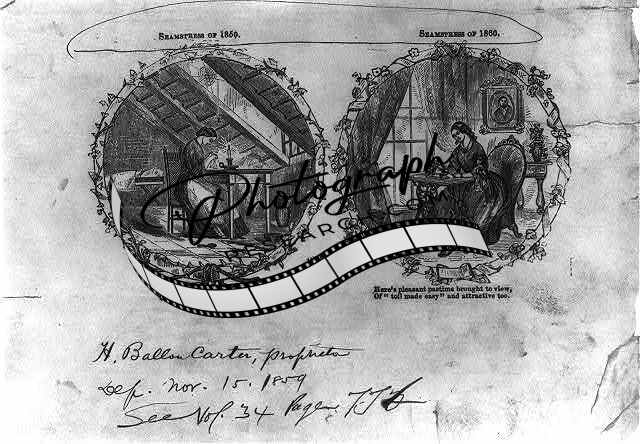 SEAMSTRESS OF 1850.
SEAMSTRESS OF 1860.
Photograph
Here's pleasant pastime brought to view,
Of "toil made easy" and attractive too.
H. Ballou Carter, proprietor
Dep. Nov. 15. 1859
See Vol. 34 Page